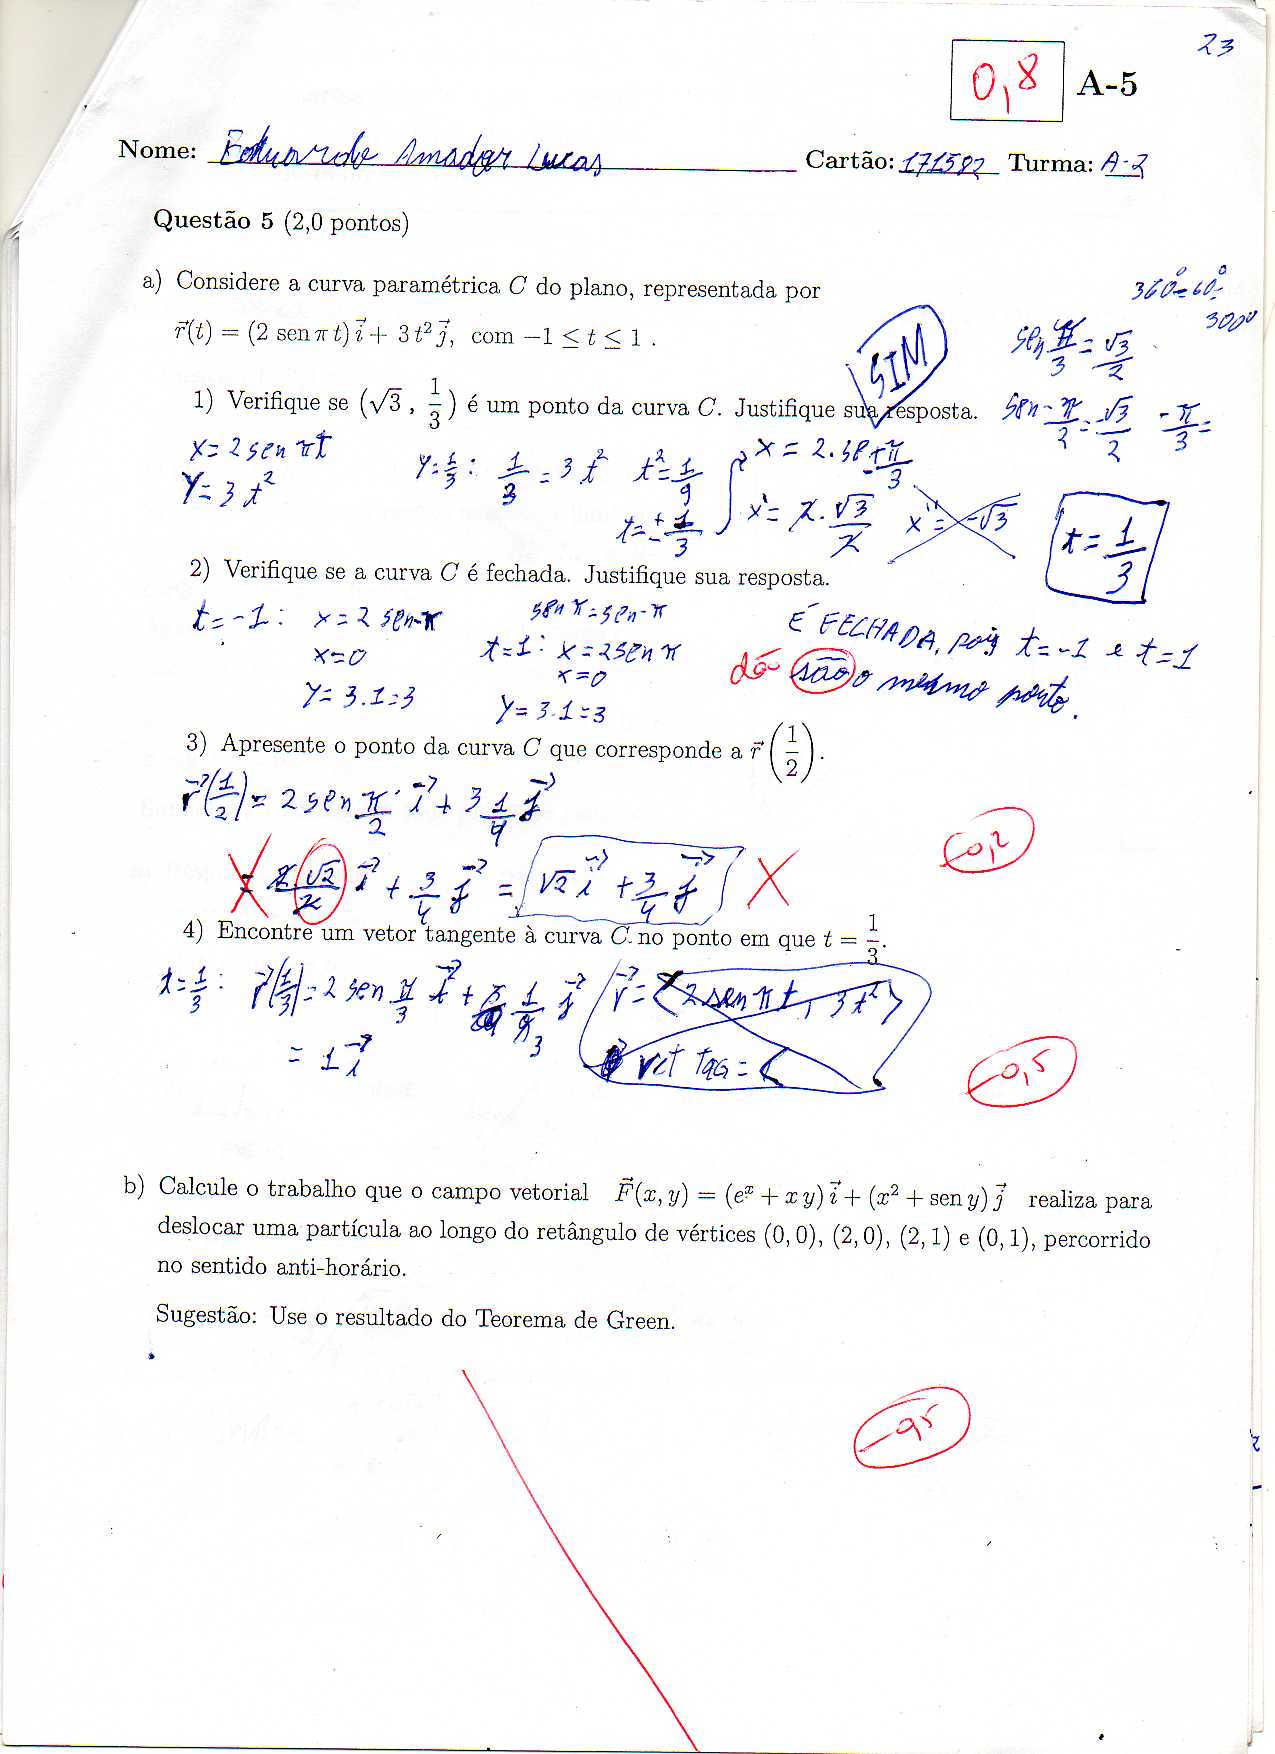 23
0,8 A-5
Nome: Eduardo Amador Lucas Cartão: 171582 Turma: A-2
Questão 5 (2,0 pontos)
a) Considere a curva paramétrica C do plano, representada por
360°-60°=
300°
r⃗(t) = (2 sen π t) i⃗ + 3 t² j⃗, com −1 ≤ t ≤ 1 .
SIM
sen π/3 = √3/2
1) Verifique se (√3 , 1/3) é um ponto da curva C. Justifique sua resposta.
sen -π/3 = -√3/2 -π/3 =
x = 2 sen πt
y = 3 t²
y = 1/3 : 1/3 = 3 t² t² = 1/9
t = ± 1/3
x = 2. sen ±π/3
x' = 2. √3/2 x'' = -√3
t = 1/3
2) Verifique se a curva C é fechada. Justifique sua resposta.
t = -1 : x = 2 sen -π
x = 0
y = 3.1 = 3
sen π = sen -π
t = 1 : x = 2 sen π
x = 0
y = 3.1 = 3
É FECHADA, pois t = -1 e t = 1
dão são o mesmo ponto.
3) Apresente o ponto da curva C que corresponde a r⃗ (1/2).
r⃗(1/2) = 2 sen π/2 . i⃗ + 3 1/4 j⃗
= 2 √2/2 i⃗ + 3/4 j⃗ = √2 i⃗ + 3/4 j⃗
-0,2
4) Encontre um vetor tangente à curva C no ponto em que t = 1/3.
t = 1/3 : r⃗(1/3) = 2 sen π/3 i⃗ + 3 1/9 j⃗ / r⃗ = (2 sen π t, 3t²)
= 1 i⃗ vet tag = (
-0,5
b) Calcule o trabalho que o campo vetorial F⃗(x, y) = (eˣ + x y) i⃗ + (x² + sen y) j⃗ realiza para
deslocar uma partícula ao longo do retângulo de vértices (0, 0), (2, 0), (2, 1) e (0, 1), percorrido
no sentido anti-horário.
Sugestão: Use o resultado do Teorema de Green.
-0,5